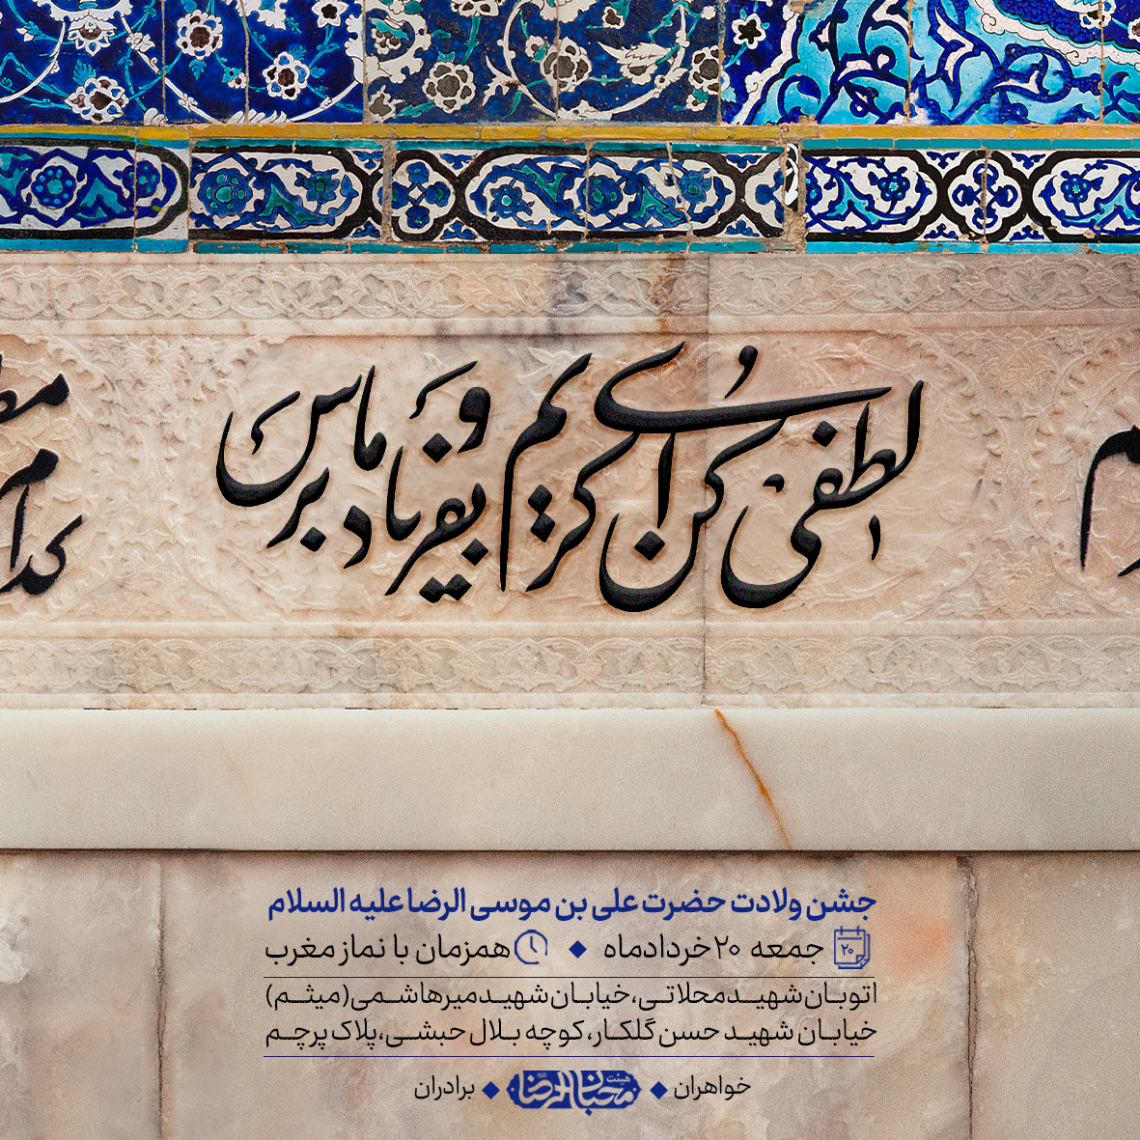 لطفی کن ای کریم و بفریاد ما برس
جشن ولادت حضرت علی بن موسی الرضا علیه السلام
۲۰
جمعه ۲۰ خردادماه ◆ همزمان با نماز مغرب
اتوبان شهید محلاتی، خیابان شهید میرهاشمی (میثم)
خیابان شهید حسن گلکار، کوچه بلال حبشی، پلاک پرچم
خواهران ◆ هیئت محبان الرضا ◆ برادران